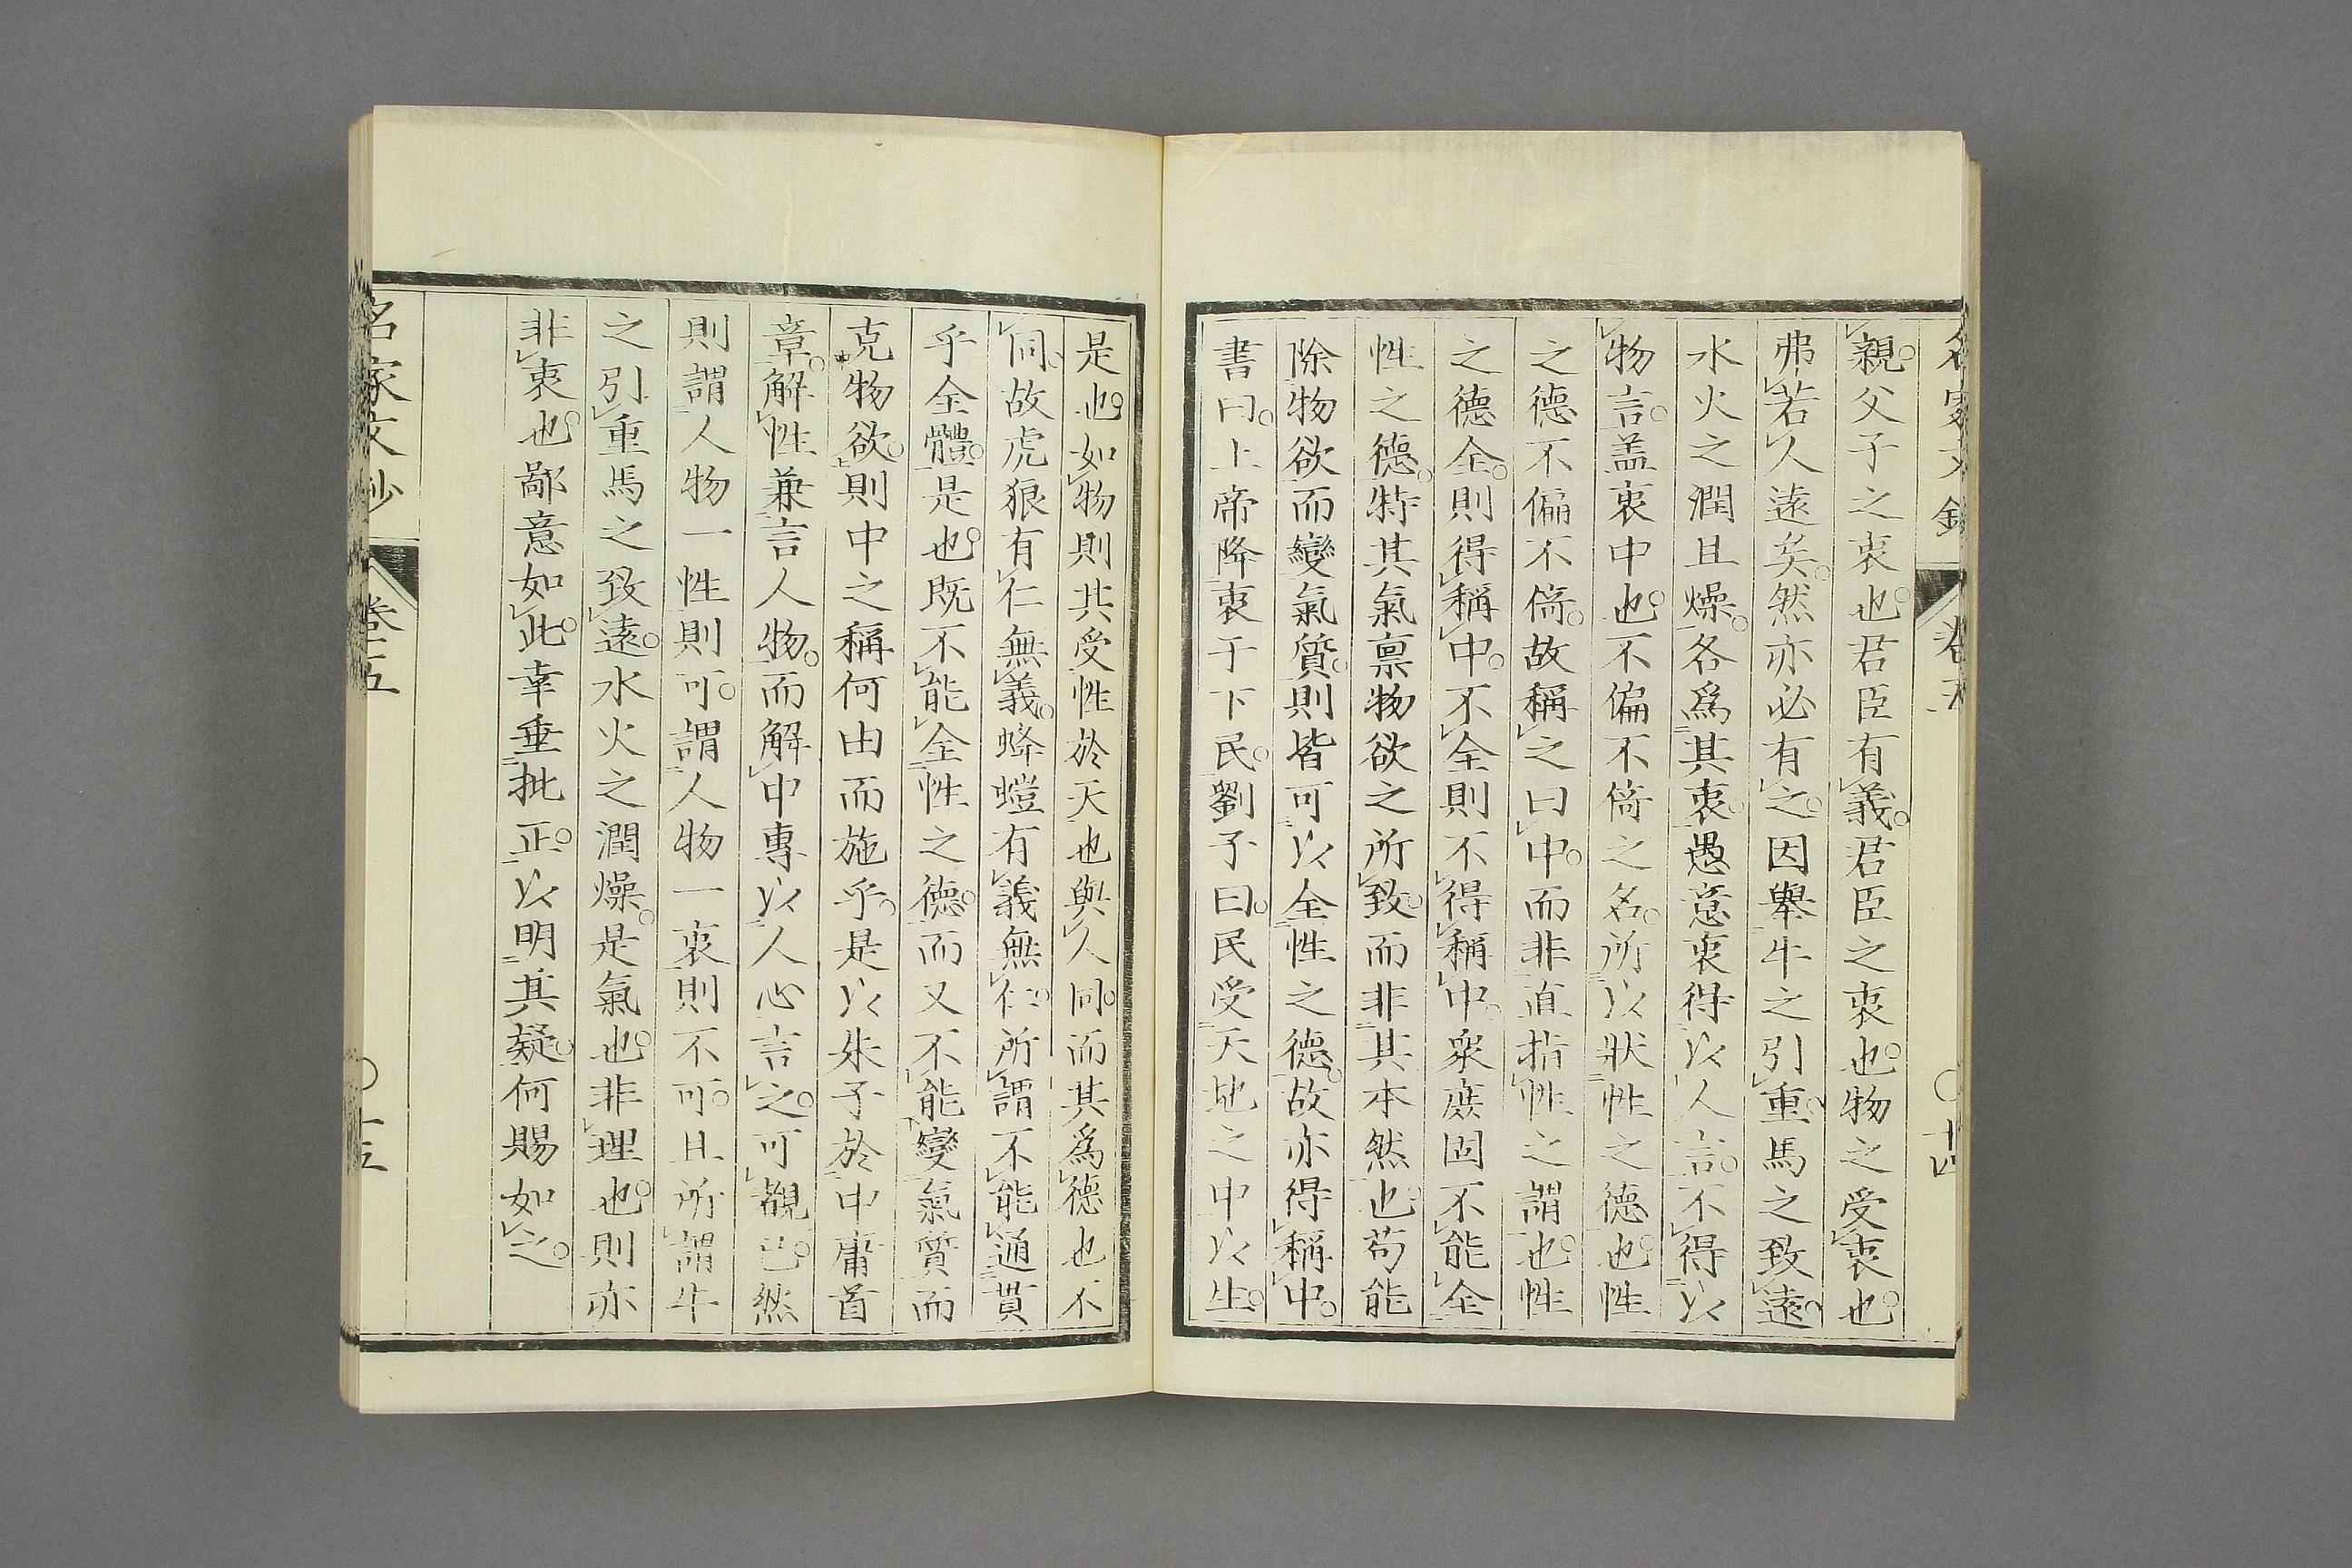 親父子之衷也君臣有義君臣之衷也物之受衷也
弗若人遠矣然亦必有之因舉牛之引重馬之致遠
水火之潤且燥各爲其衷愚意衷得以人言不得以
物言盖衷中也不偏不倚之名所以狀性之德也性
之德不偏不倚故稱之曰中而非直指性之謂也性
之德全則得稱中不全則不得稱中衆庶固不能全
性之德特其氣禀物欲之所致而非其本然也苟能
除物欲而變氣質則皆可以全性之德故亦得稱中
書曰上帝降衷于下民劉子曰民受天地之中以生
是也如物則其受性於天也與人同而其爲德也不
同故虎狼有仁無義蜂螘有義無仁所謂不能通貫
乎全體是也既不能全性之德而又不能變氣質而
克物欲則中之稱何由而施乎是以朱子於中庸首
章解性兼言人物而解中專以人心言之可覩已然
則謂人物一性則可謂人物一衷則不可且所謂牛
之引重馬之致遠水火之潤燥是氣也非理也則亦
非衷也鄙意如此幸垂批正以明其疑何賜如之
名家文抄 卷五 十五